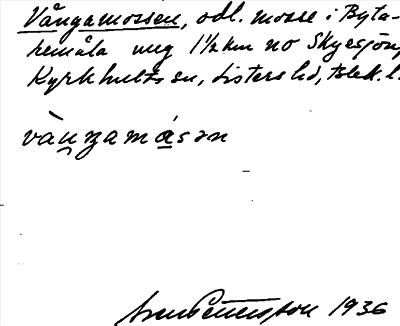 Vångamossen, odl. mosse i Byta-
remåla ung 1½ km no Skyesjön,
Kyrkhults sn, Listers hd, Blek. l.
vàṉŋamás̱ən
Sven Pettersson 1936